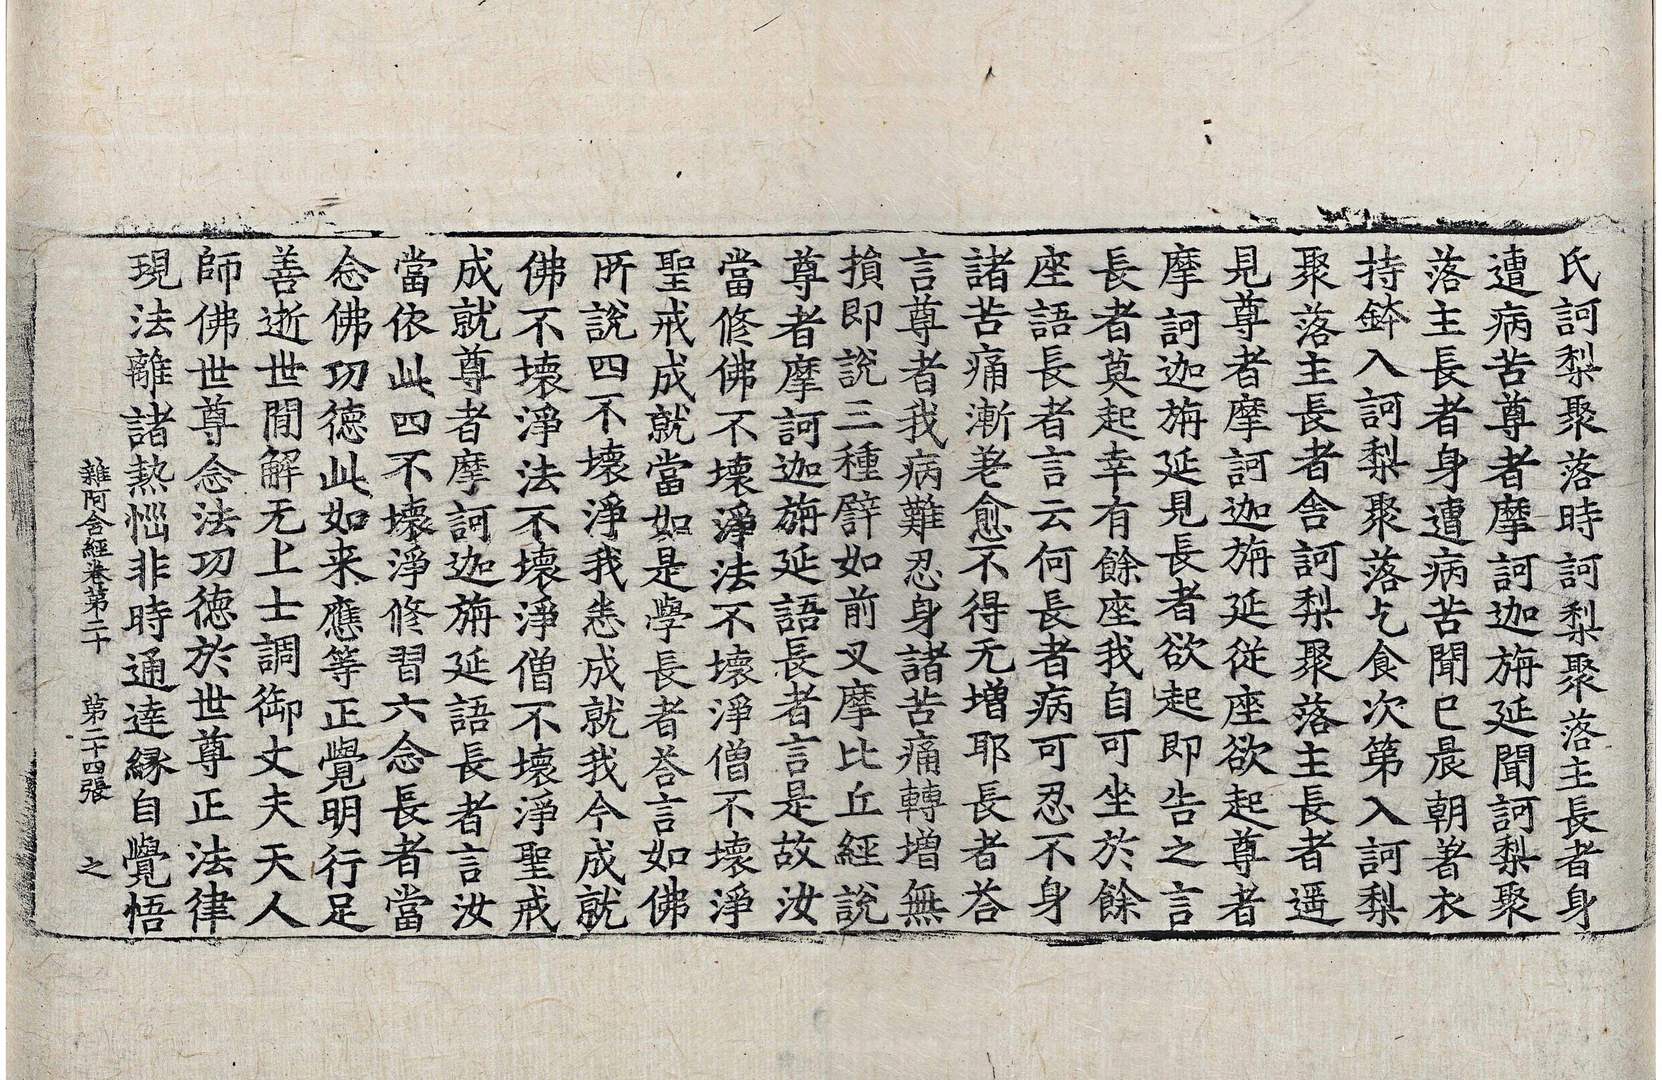 氏訶梨聚落時訶梨聚落主長者身
遭病苦尊者摩訶迦旃延聞訶梨聚
落主長者身遭病苦聞已晨朝著衣
持鉢入訶梨聚落乞食次第入訶梨
聚落主長者舍訶梨聚落主長者遥
見尊者摩訶迦旃延從座欲起尊者
摩訶迦旃延見長者欲起即告之言
長者莫起幸有餘座我自可坐於餘
座語長者言云何長者病可忍不身
諸苦痛漸差愈不得无増耶長者荅
言尊者我病難忍身諸苦痛轉増無
損即說三種譬如前叉摩比丘經說
尊者摩訶迦旃延語長者言是故汝
當修佛不壞淨法不壞淨僧不壞淨
聖戒成就當如是學長者荅言如佛
所說四不壞淨我悉成就我今成就
佛不壞淨法不壞淨僧不壞淨聖戒
成就尊者摩訶迦旃延語長者言汝
當依此四不壞淨修習六念長者當
念佛功德此如来應等正覺明行足
善逝世間解无上士調御丈夫天人
師佛世尊念法功德於世尊正法律
現法離諸熱惱非時通達縁自覺悟
雜阿含經卷第二十 第二十四張 之